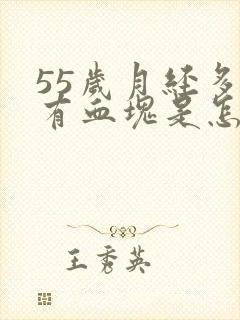 55歲月经多
有血塊是怎
王秀英